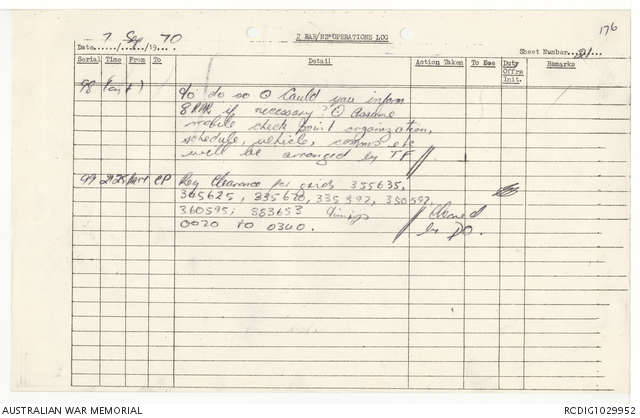 176
2 RAR/NZ OPERATIONS LOG
Date 7/Sep/1970
Sheet Number 21
Serial Time From To Detail Action Taken To Bee Duty Offrs Init. Remarks
98 (cont) to do so O Could you inform
8 RAR if necessary? O Assume
mobile check point organization,
schedule, vehicle, comms etc
will be arranged by TF //
99 2125 CP Req Clearance for grids 355635,
345625, 335620, 335592, 350592,
360595, 383653 timings // Cleared
0020 to 0340. by DO.
AUSTRALIAN WAR MEMORIAL
RCDIG1029952